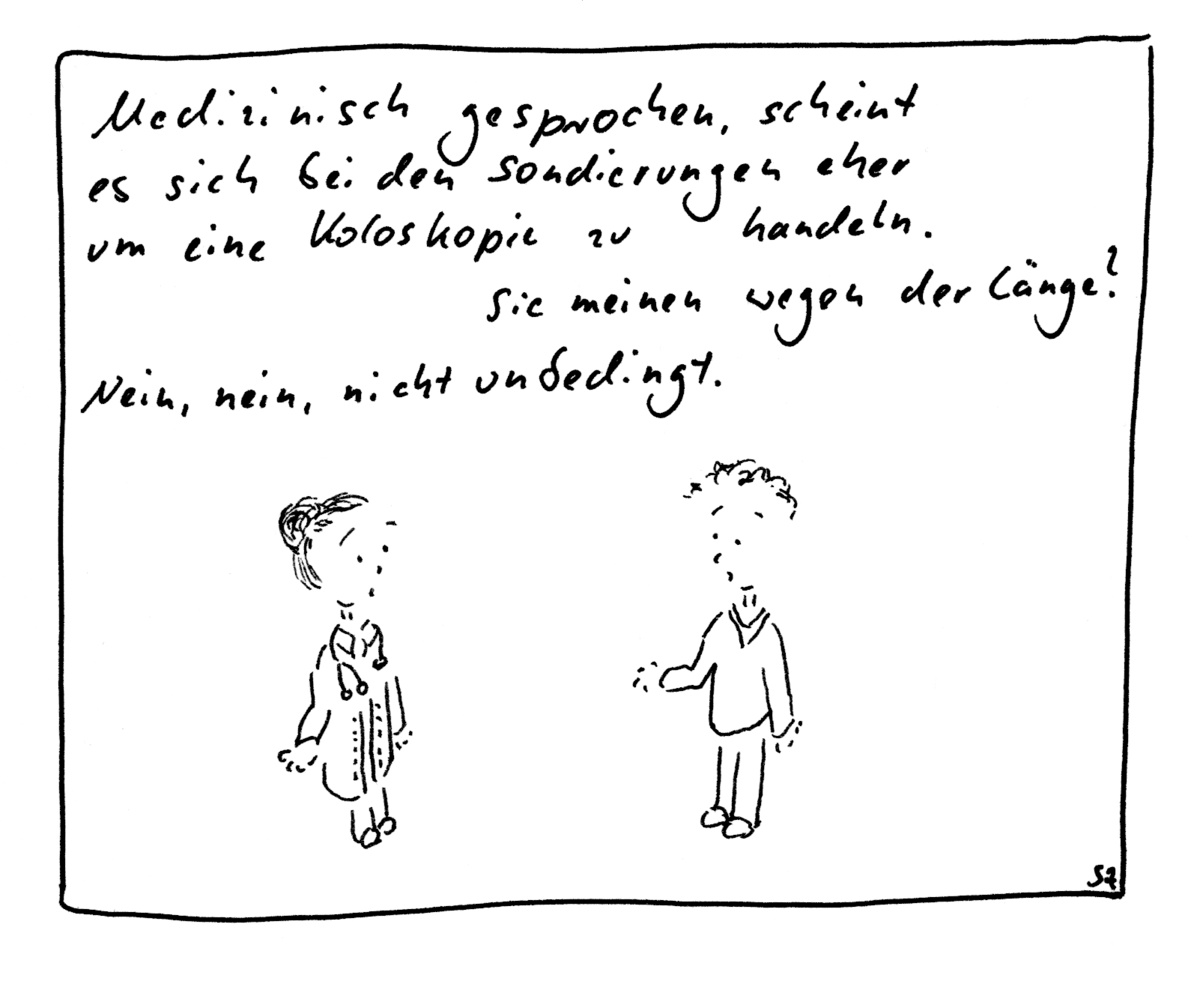 Medizinisch gesprochen, scheint
es sich bei den Sondierungen eher
um eine Koloskopie zu handeln.
Sie meinen wegen der Länge?
Nein, nein, nicht unbedingt.
SZ